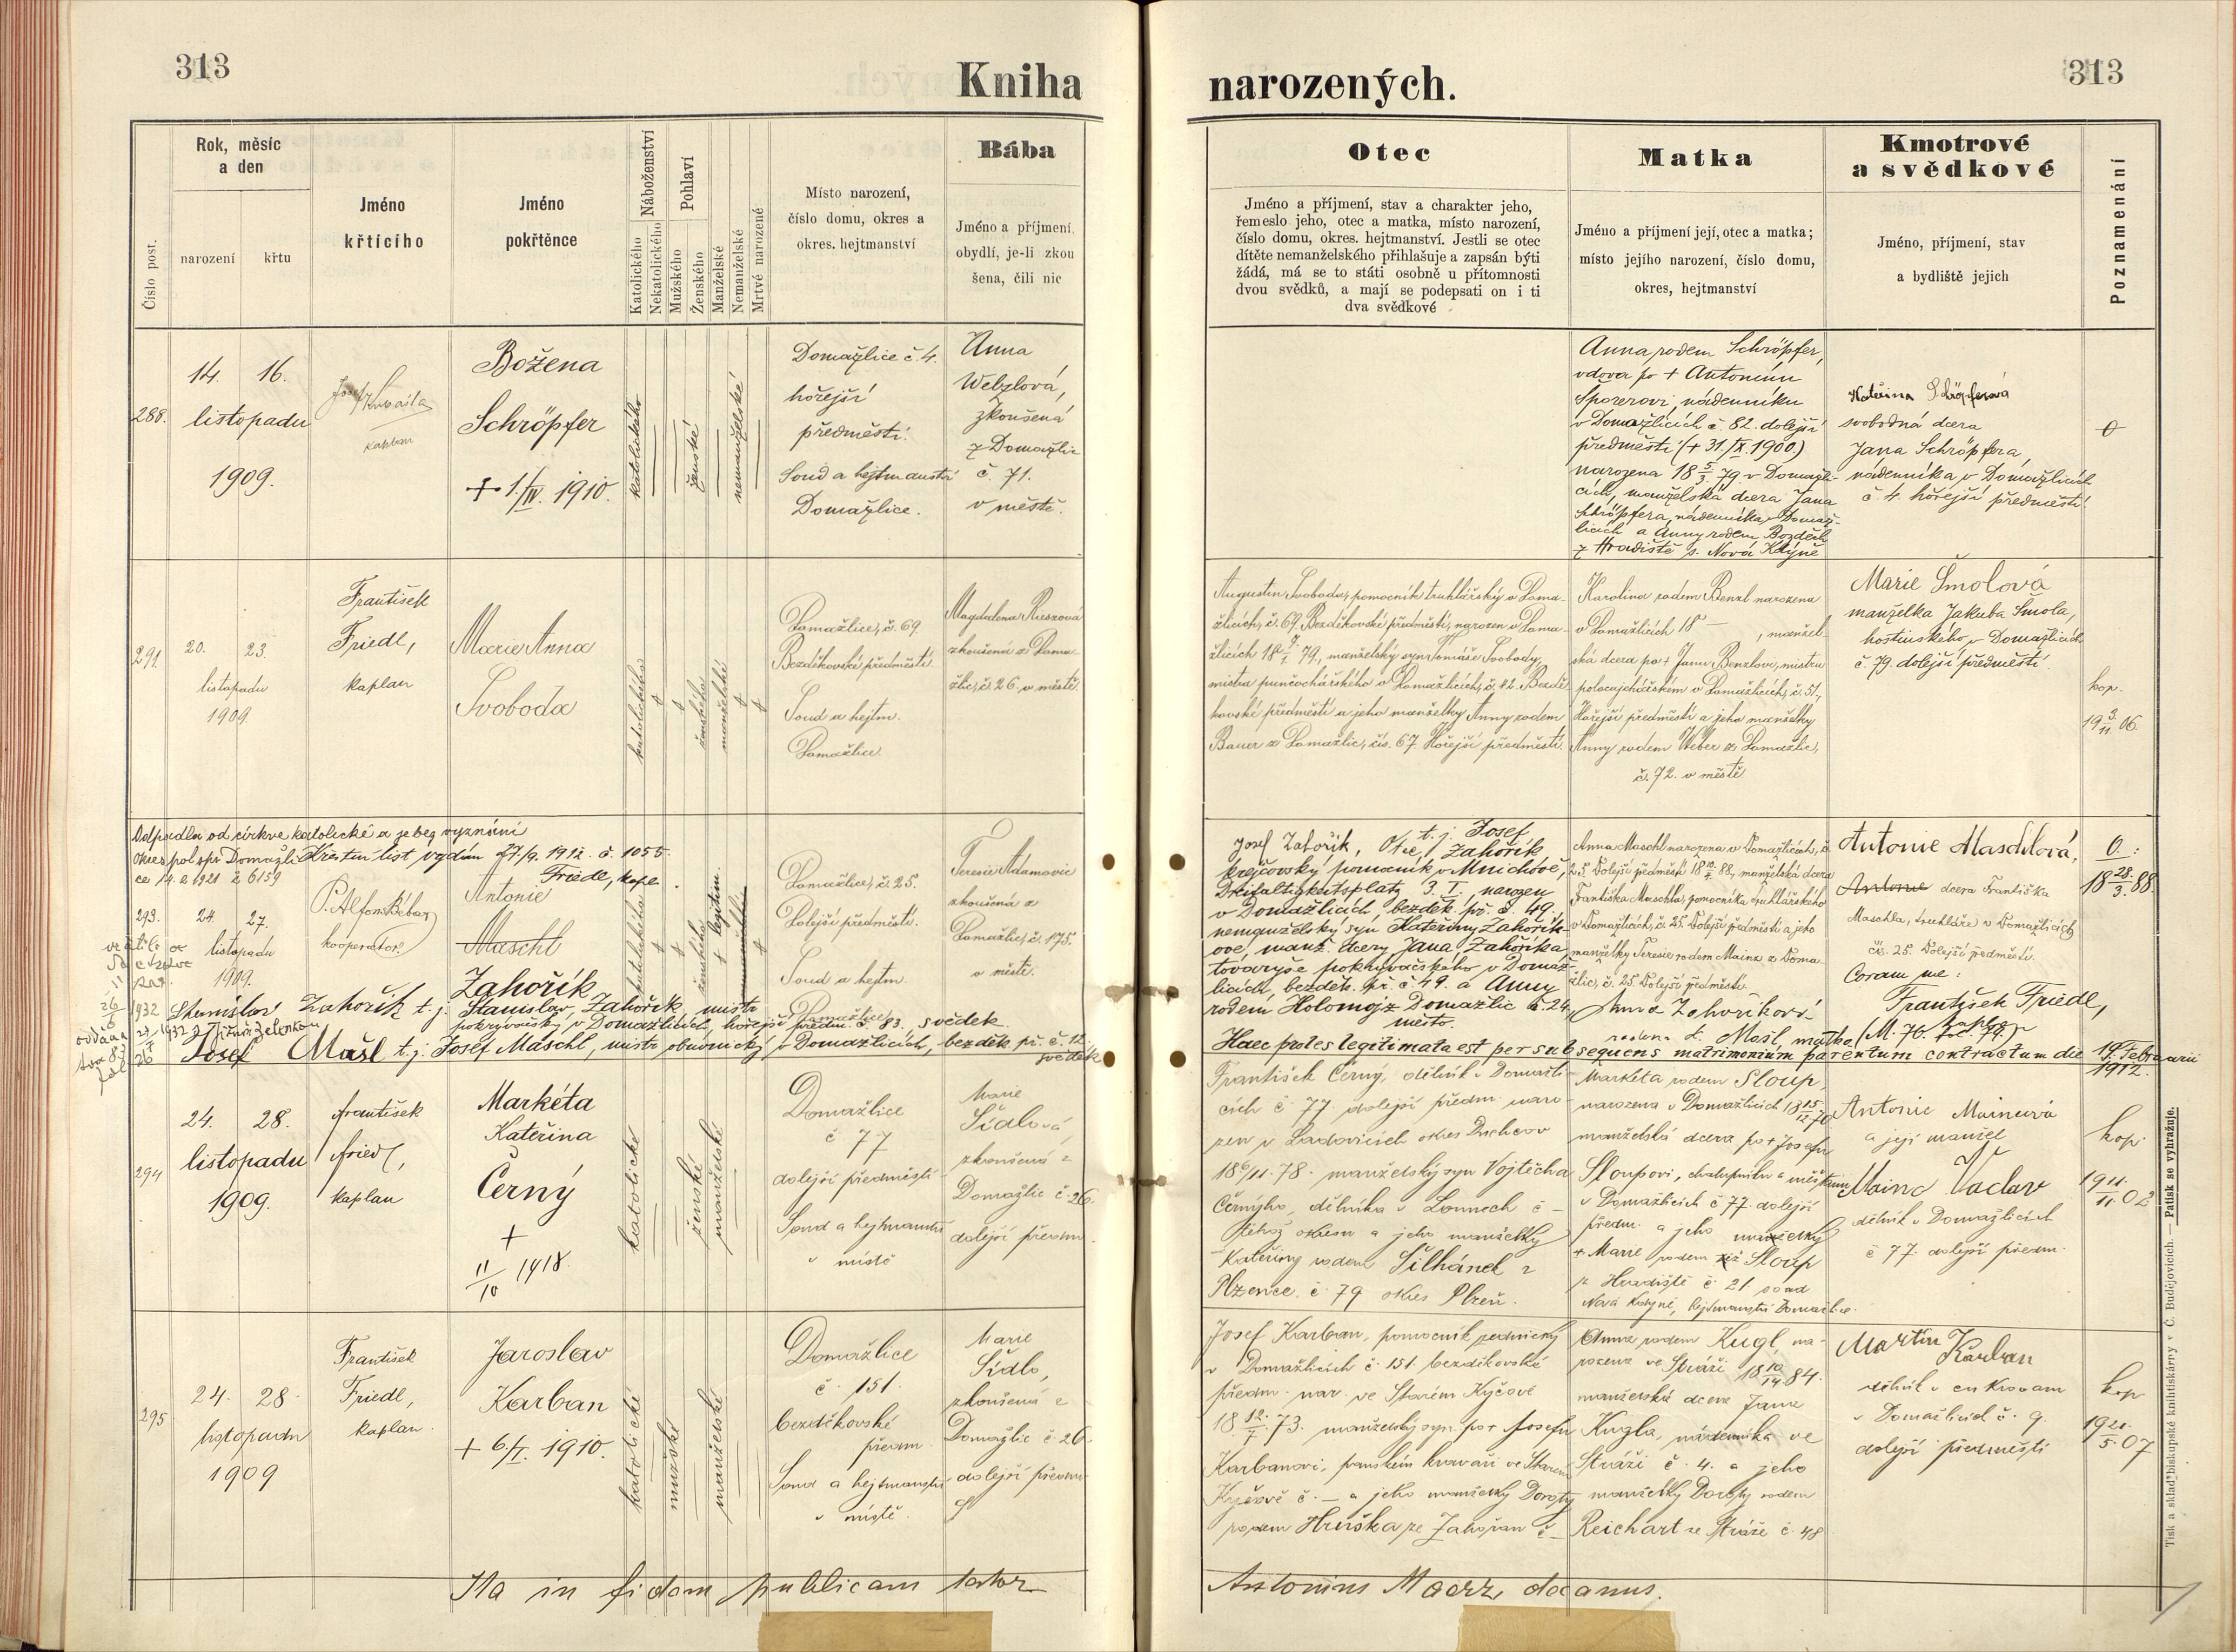 313
Kniha
narozených.
313
Číslo post.
Rok, měsíc
a den
narození
křtu
Jméno
křtícího
Jméno
pokřtěnce
Náboženství
Katolického
Nekatolického
Pohlaví
Mužského
Ženského
Manželské
Nemanželské
Mrtvě narozené
Místo narození,
číslo domu, okres a
okres. hejtmanství
Bába
Jméno a příjmení,
obydlí, je-li zkou
šena, čili nic
Otec
Jméno a příjmení, stav a charakter jeho,
řemeslo jeho, otec a matka, místo narození,
číslo domu, okres. hejtmanství. Jestli se otec
dítěte nemanželského přihlašuje a zapsán býti
žádá, má se to státi osobně u přítomnosti
dvou svědků, a mají se podepsati on i ti
dva svědkové
Matka
Jméno a příjmení její, otec a matka;
místo jejího narození, číslo domu,
okres, hejtmanství
Kmotrové
a svědkové
Jméno, příjmení, stav
a bydliště jejich
Poznamenání
288.
14. 16.
listopadu
1909.
kaplan
Božena
Schröpfer
+ 1./IV. 1910.
katolického
ženské
nemanželské
Domažlice č. 4.
hořejší
předměstí.
Soud a hejtmanství
Domažlice.
Anna
Webzlová,
zkoušená
z Domažlic
č. 71.
v městě.
Anna rodem Schröpfer,
vdova po + Antonínu
Sporerovi, nádenníku
v Domažlicích č 82. dolejší
předměstí (+ 31/IX. 1900.)
narozena 18 5/3. 79. v Domažli-
cích, manželská dcera Jana
Schröpfera, nádenníka v Domaž-
licích a Anny rodem Bozděch
z Hradiště s. Nová Kdyně
Kateřina Schröpferová
svobodná dcera
Jana Schröpfera,
nádenníka v Domažlicích
č. 4. hořejší předměstí.
291.
20. 23.
listopadu
1909.
František
Friedl,
kaplan
Marie Anna
Svoboda
katolického
ženského
manželské
Domažlice, č. 69.
Bezděkovské předměstí.
Soud a hejtm.
Domažlice.
Magdalena Ruszová
zkoušená z Doma-
žlic, č. 26. v městě.
Augustin Svoboda, pomocník truhlářský v Doma-
žlicích, č. 69. Bezděkovské předměstí, narozen v Doma-
žlicích 18 79., manželský syn Tomáše Svobody,
mistra punčochářského v Domažlicích, č. 42. Bezdě-
kovské předměstí a jeho manželky Anny rodem
Bauer z Domažlic, čís. 67. Hořejší předměstí.
Karolina rodem Benzl narozena
v Domažlicích 18 — , manžel-
ská dcera po + Janu Benzlovi, mistru
v Domažlicích, č. 51.,
Hořejší předměstí a jeho manželky
Anny rodem Weber z Domažlic,
č. 72. v městě.
Marie Smolová
manželka Jakuba Smola,
hostinského v Domažlicích
č. 79. dolejší předměstí.
kop.
19 3./11. 06.
Odpadla od církve katolické a je bez vyznání
Okres. pol. spr. Domažli-
ce 14. 2 1921 č 6159
Křestní list vydán 27/9. 1912. č. 1055.
Friedl, kapl.
293.
24. 27.
listopadu
1909.
P. Alfons Bébar,
kooperator.
Antonie
Maschl
Zahořík
katolického
ženského
legitim.
Domažlice, č. 25.
Dolejší předměstí.
Soud a hejtm.
Domažlice
Terezie Adamovic
zkoušená z
Domažlic, č. 175.
v městě.
Josef Zahořík, Otec, t. j. Josef
Zahořík
krejčovský pomocník v Mnichově,
Dreifaltigkeitsplatz 3. I., narozen
v Domažlicích, bezděk. př. č. 49.
nemanželský syn Kateřiny Zahořík-
ové, manž. dcery Jana Zahoříka,
tovaryše pokrývačského v Domaž-
licích, bezděk. př. č. 49. a Anny
rodem Holomojz Domažlic č. 24,
město.
Anna Maschl narozena v Domažlicích, č.
25. Dolejší předměstí 18 88, manželská dcera
Františka Maschla, pomocníka truhlářského
v Domažlicích, č. 25. Dolejší předměstí a jeho
manželky Terezie rodem Mainz z Doma-
žlic, č. 25. Dolejší předměstí.
Anna Zahoříková
rodem t. Mašl, matka
Antonie Maschlová,
Antonie dcera Františka
Maschla, truhláře v Domažlicích
čís. 25. Dolejší předměstí.
Coram me:
František Friedl,
kaplan
18 28./3. 88.
Stanislav Zahořík t. j. Stanislav Zahořík, mistr
pokrývačský v Domažlicích, hořejší předm. č. 83. svědek.
Josef Mašl t. j. Josef Maschl, mistr obuvnický v Domažlicích, bezděk. př. č. 12.
svědek
Haec proles legitimata est per subsequens matrimonium parentum contractum die 19. Februarii
1912.
294
24. 28.
listopadu
1909.
František
Friedl,
kaplan
Markéta
Kateřina
Černý
+
11/10 1918.
katolické
ženské
manželské
Domažlice
č 77
dolejší předměstí
Soud a hejtmanství
v místě
Marie
Sidlová,
zkoušená z
Domažlic č 26.
dolejší předm.
František Černý, dělník v Domažli-
cích č 77 dolejší předm. naro-
zen v Ladovicích okres Duchcov
18 6/11. 78. manželský syn Vojtěcha
Černýho, dělníka v Lounech č —
téhož okresu a jeho manželky
Kateřiny rodem Šilhánek z
Plzence č. 79 okres Plzeň.
Markéta rodem Sloup,
narozena v Domažlicích 18 15/12 70
manželská dcera po + Josefu
Sloupovi, chalupníku a měšťanu
v Domažlicích č 77 dolejší
předm. a jeho manželky
+ Marie rodem též Sloup
z Hradiště č 21 soud
Nová Kdyně, hejtmanství Domažlice.
Antonie Mainzová
a její manžel
Mainz Václav
dělník v Domažlicích
č 77. dolejší předm.
kop.
19 11./11. 02
295
24. 28.
listopadu
1909
František
Friedl,
kaplan.
Jaroslav
Karban
+ 6./I. 1910.
katolické
mužské
manželské
Domažlice
č. 151.
bezděkovské
předm.
Soud a hejtmanství
v místě.
Marie
Sidlo,
zkoušená z
Domažlic č. 26.
dolejší předm.
Josef Karban, pomocník zednický
v Domažlicích č. 151. bezděkovské
předm. nar. ve Starém Kyčově
18 12./I. 73. manželský syn po + Josefu
Karbanovi, panském kravaři ve Starém
Kyčově č. — a jeho manželky Doroty
rodem Hruška ze Zahořan č —
Anna rodem Kugl, na-
rozena ve Stráži 18 84.
manželská dcera Jana
Kugla, nádenníka ve
Stráži č. 4. a jeho
manželky Doroty rodem
Reichart ze Stráže č. 48
Martin Karban
dělník v cukrovaru
v Domažlicích č. 9.
dolejší předměstí
kop
19 21./5. 07
Ita in fidem publicam testor
Antonius Maerz, decanus.
Tisk a sklad biskupské knihtiskárny v Č. Budějovicích. — Patisk se vyhražuje.